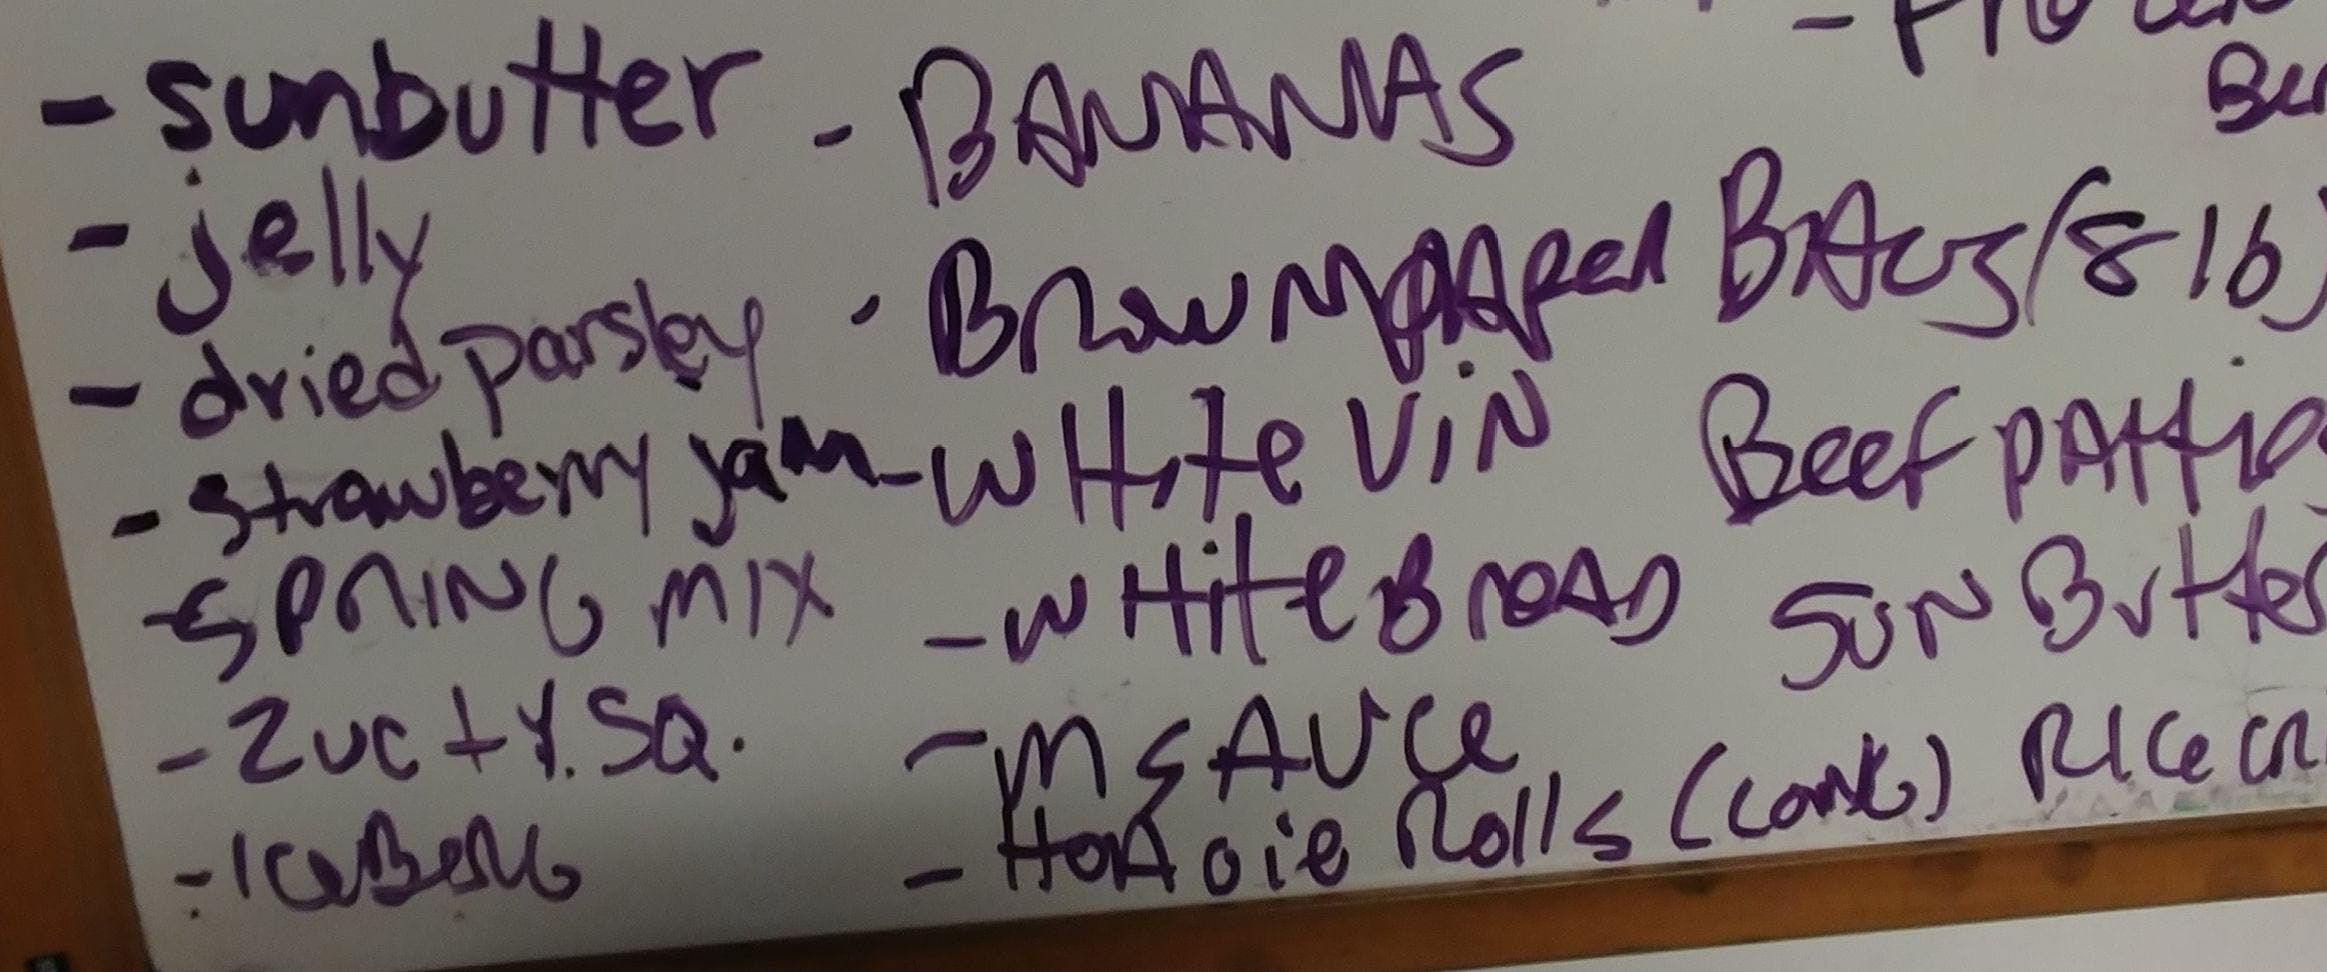 - sunbutter
- jelly
- dried parsley
- strawberry jam
- SPRING MIX
- ZUC + Y. SQ.
- ICEBERG
- BANANAS
- BROWN PAPER BAGS (8 lb)
- WHITE ViN
- WHiTe BREAD
- M SAUCE
- HOAGIE Rolls (LONG)
Beef PATTIES
SUN BUTTER
RICE